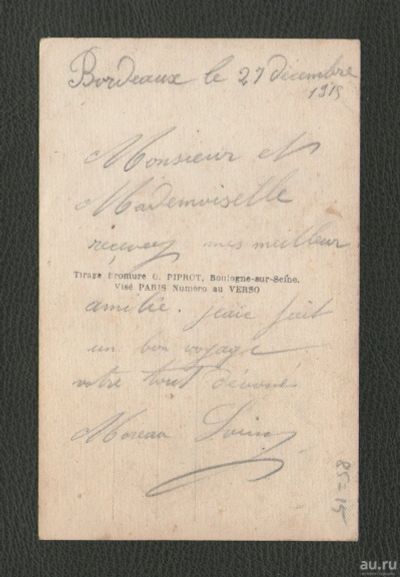 Bordeaux le 27 décembre
1915
Monsieur et
Mademoiselle
recevez mes meilleur
Tirage Bromure G. PIPROT, Boulogne-sur-Seine.
Visé PARIS Numéro au VERSO
amitié. j'aie fait
un bon voyage
votre tout dévoué
Moreau
85=15
au.ru